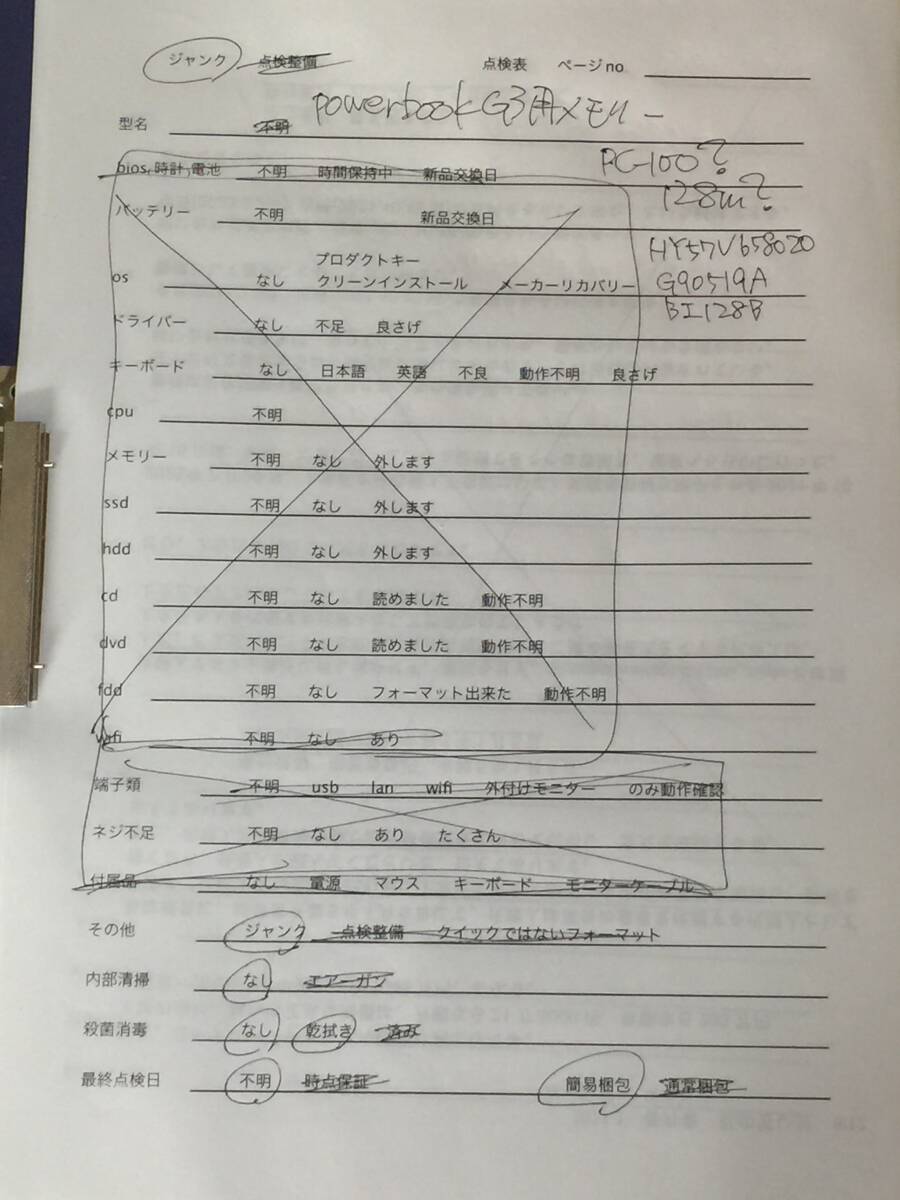 ジャンク 点検整備 点検表 ページno
型名 不明 powerbook G3用メモリー
PC-100?
bios,時計,電池 不明 時間保持中 新品交換日
128m?
バッテリー 不明 新品交換日
HY57V658020
プロダクトキー
os なし クリーンインストール メーカーリカバリー G90519A
BI128B
ドライバー なし 不足 良さげ
キーボード なし 日本語 英語 不良 動作不明 良さげ
cpu 不明
メモリー 不明 なし 外します
ssd 不明 なし 外します
hdd 不明 なし 外します
cd 不明 なし 読めました 動作不明
dvd 不明 なし 読めました 動作不明
fdd 不明 なし フォーマット出来た 動作不明
wifi 不明 なし あり
端子類 不明 usb lan wifi 外付けモニター のみ動作確認
ネジ不足 不明 なし あり たくさん
付属品 なし 電源 マウス キーボード モニターケーブル
その他 ジャンク 点検整備 クイックではないフォーマット
内部清掃 なし エアーガン
殺菌消毒 なし 乾拭き 済み
最終点検日 不明 時点保証 簡易梱包 通常梱包